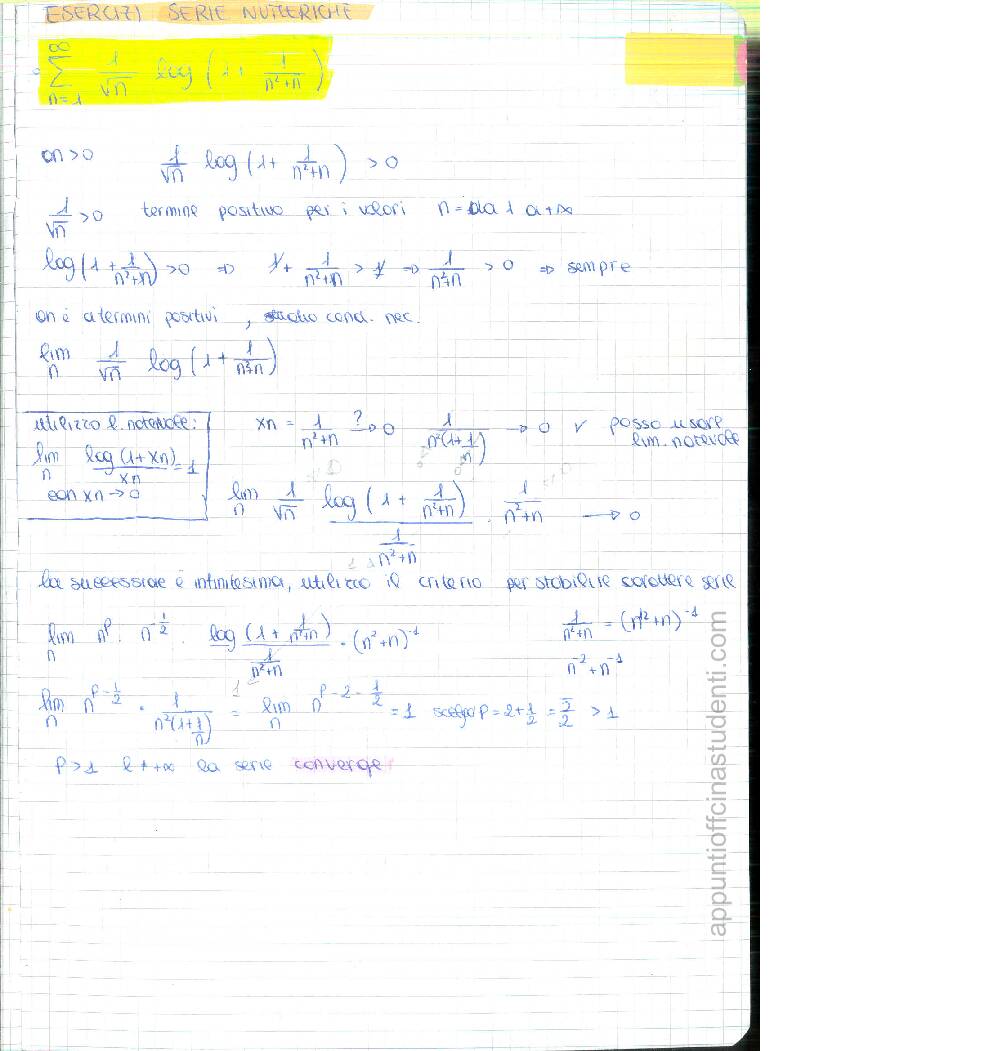 ESERCIZI SERIE NUMERICHE
∞
∑ 1/√n log (1 + 1/(n²+n))
n=1
an>0 1/√n log (1+ 1/(n²+n)) >0
1/√n >0 termine positivo per i valori n= da 1 a +∞
log (1 + 1/(n²+n)) >0 ⇒ 1+ 1/(n²+n) > 1 ⇒ 1/(n²+n) >0 ⇒ sempre
an è a termini positivi, studio cond. nec.
lim n 1/√n log (1 + 1/(n²+n))
utilizzo l. notevole: xn = 1/(n²+n) →? 0 1/(n²(1+1/n)) → 0 v posso usare
lim. notevole
lim n log (1+xn)/xn = 1
con xn → 0
lim n 1/√n log (1 + 1/(n²+n)) / (1/(n²+n)) · 1/(n²+n) → 0
la successione è infinitesima, utilizzo il criterio per stabilire carattere serie
lim n nᵖ · n^(-1/2) · log (1 + 1/(n²+n)) / (1/(n²+n)) · (n²+n)⁻¹ 1/(n²+n) = (n²+n)⁻¹
n⁻² + n⁻¹
lim n n^(p-1/2) · 1/(n²(1+1/n)) = lim n n^(p-2-1/2) = 1 scelgo p = 2+1/2 = 5/2 >1
p>1 l ≠ +∞ la serie converge
appuntioffcinastudenti.com